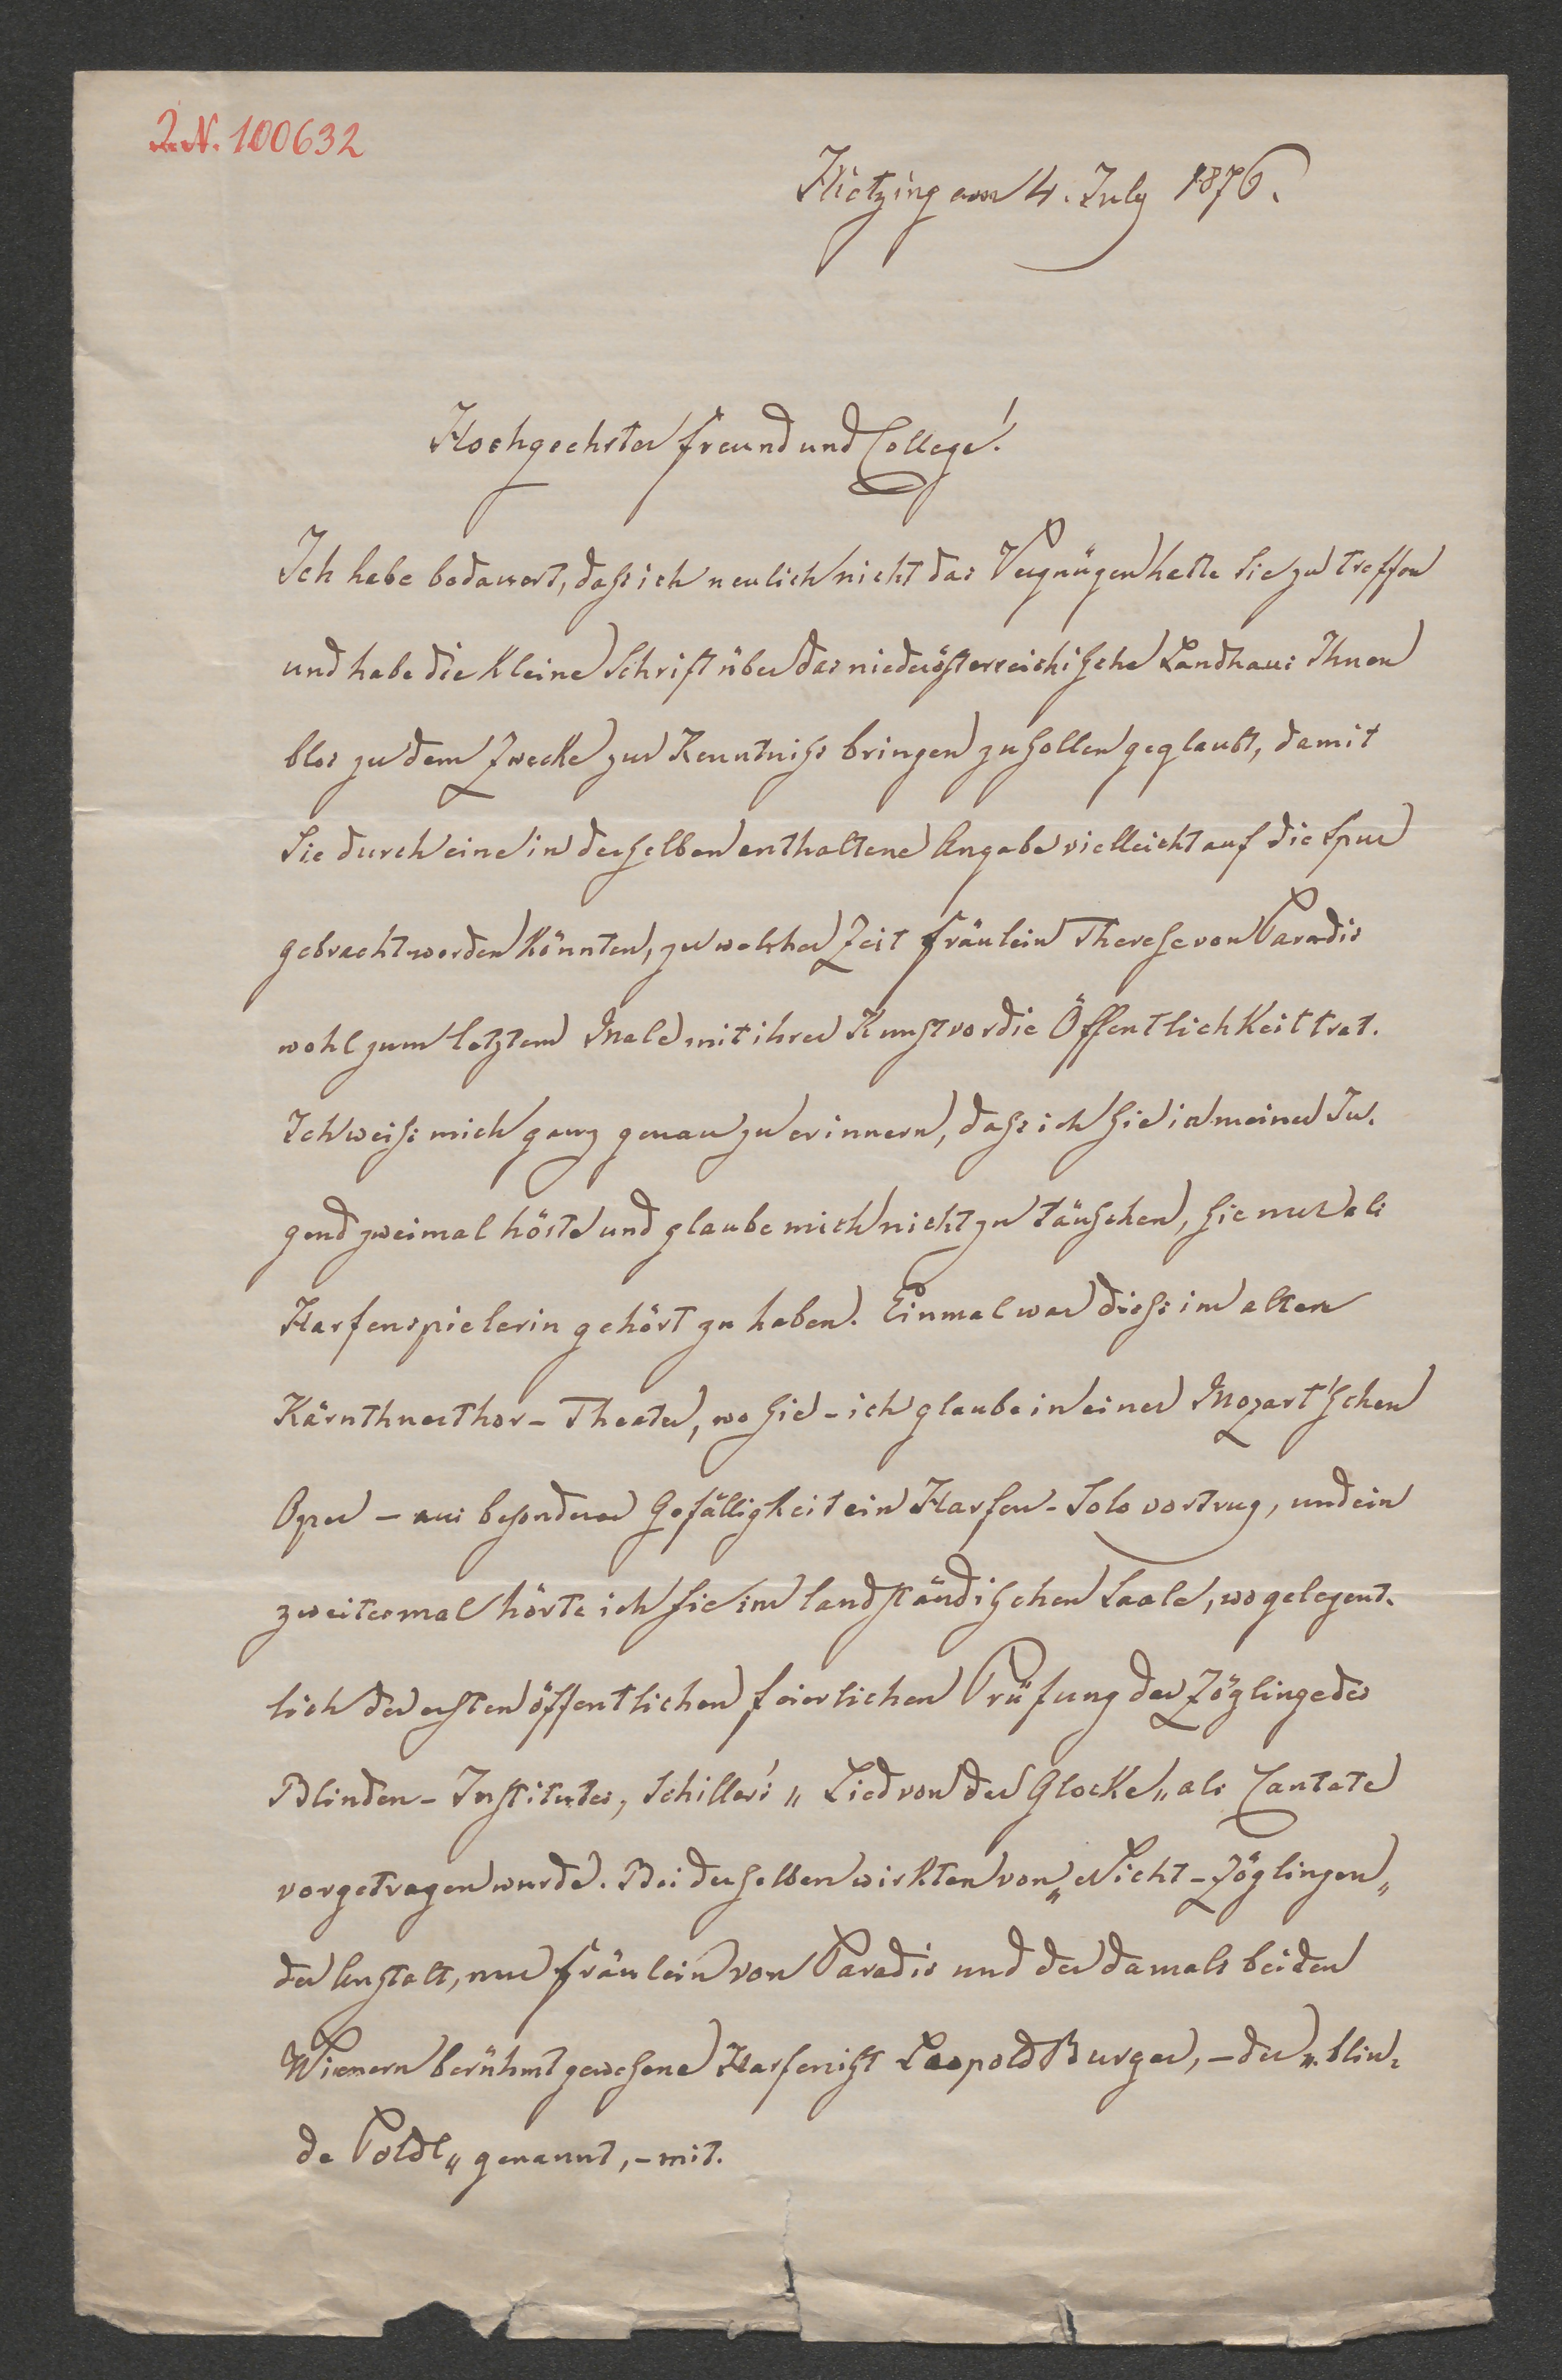 I.N. 100632
Hietzing am 4. July 1876.
Hochgeehrter Freund und College!
Ich habe bedauert, daß ich neulich nicht das Vergnügen hatte Sie zu treffen
und habe die kleine Schrift über das niederösterreichische Landhaus Ihnen
blos zu dem Zwecke zur Kenntniß bringen zu sollen geglaubt, damit
Sie durch eine in derselben enthaltene Angabe vielleicht auf die Spur
gebracht werden könnten, zu welcher Zeit Fräulein Therese von Paradis
wohl zum letztem Male mit ihrer Kunst vor die Öffentlichkeit trat.
Ich weiß mich ganz genau zu erinnern, daß ich sie in meiner Ju-
gend zweimal hörte und glaube mich nicht zu täuschen, sie nur als
Harfenspielerin gehört zu haben. Einmal war dieß im alten
Kärnthnerthor-Theater, wo sie - ich glaube in einer Mozart'schen
Oper - aus besonderer Gefälligkeit ein Harfen-Solo vortrug, und ein
zweitesmal hörte ich sie im landständischen Saale, wo gelegent-
lich der ersten öffentlichen feierlichen Prüfung der Zöglinge des
Blinden-Institutes, Schiller's „Lied von der Glocke„ als Cantate
vorgetragen wurde. Bei derselben wirkten von „Nicht-Zöglingen„
der Anstalt, nur Fräulein von Paradis und der damals bei den
Wienern berühmt gewesene Harfenist Leopold Burger, - der „blin-
de Poldl„ genannt, - mit.